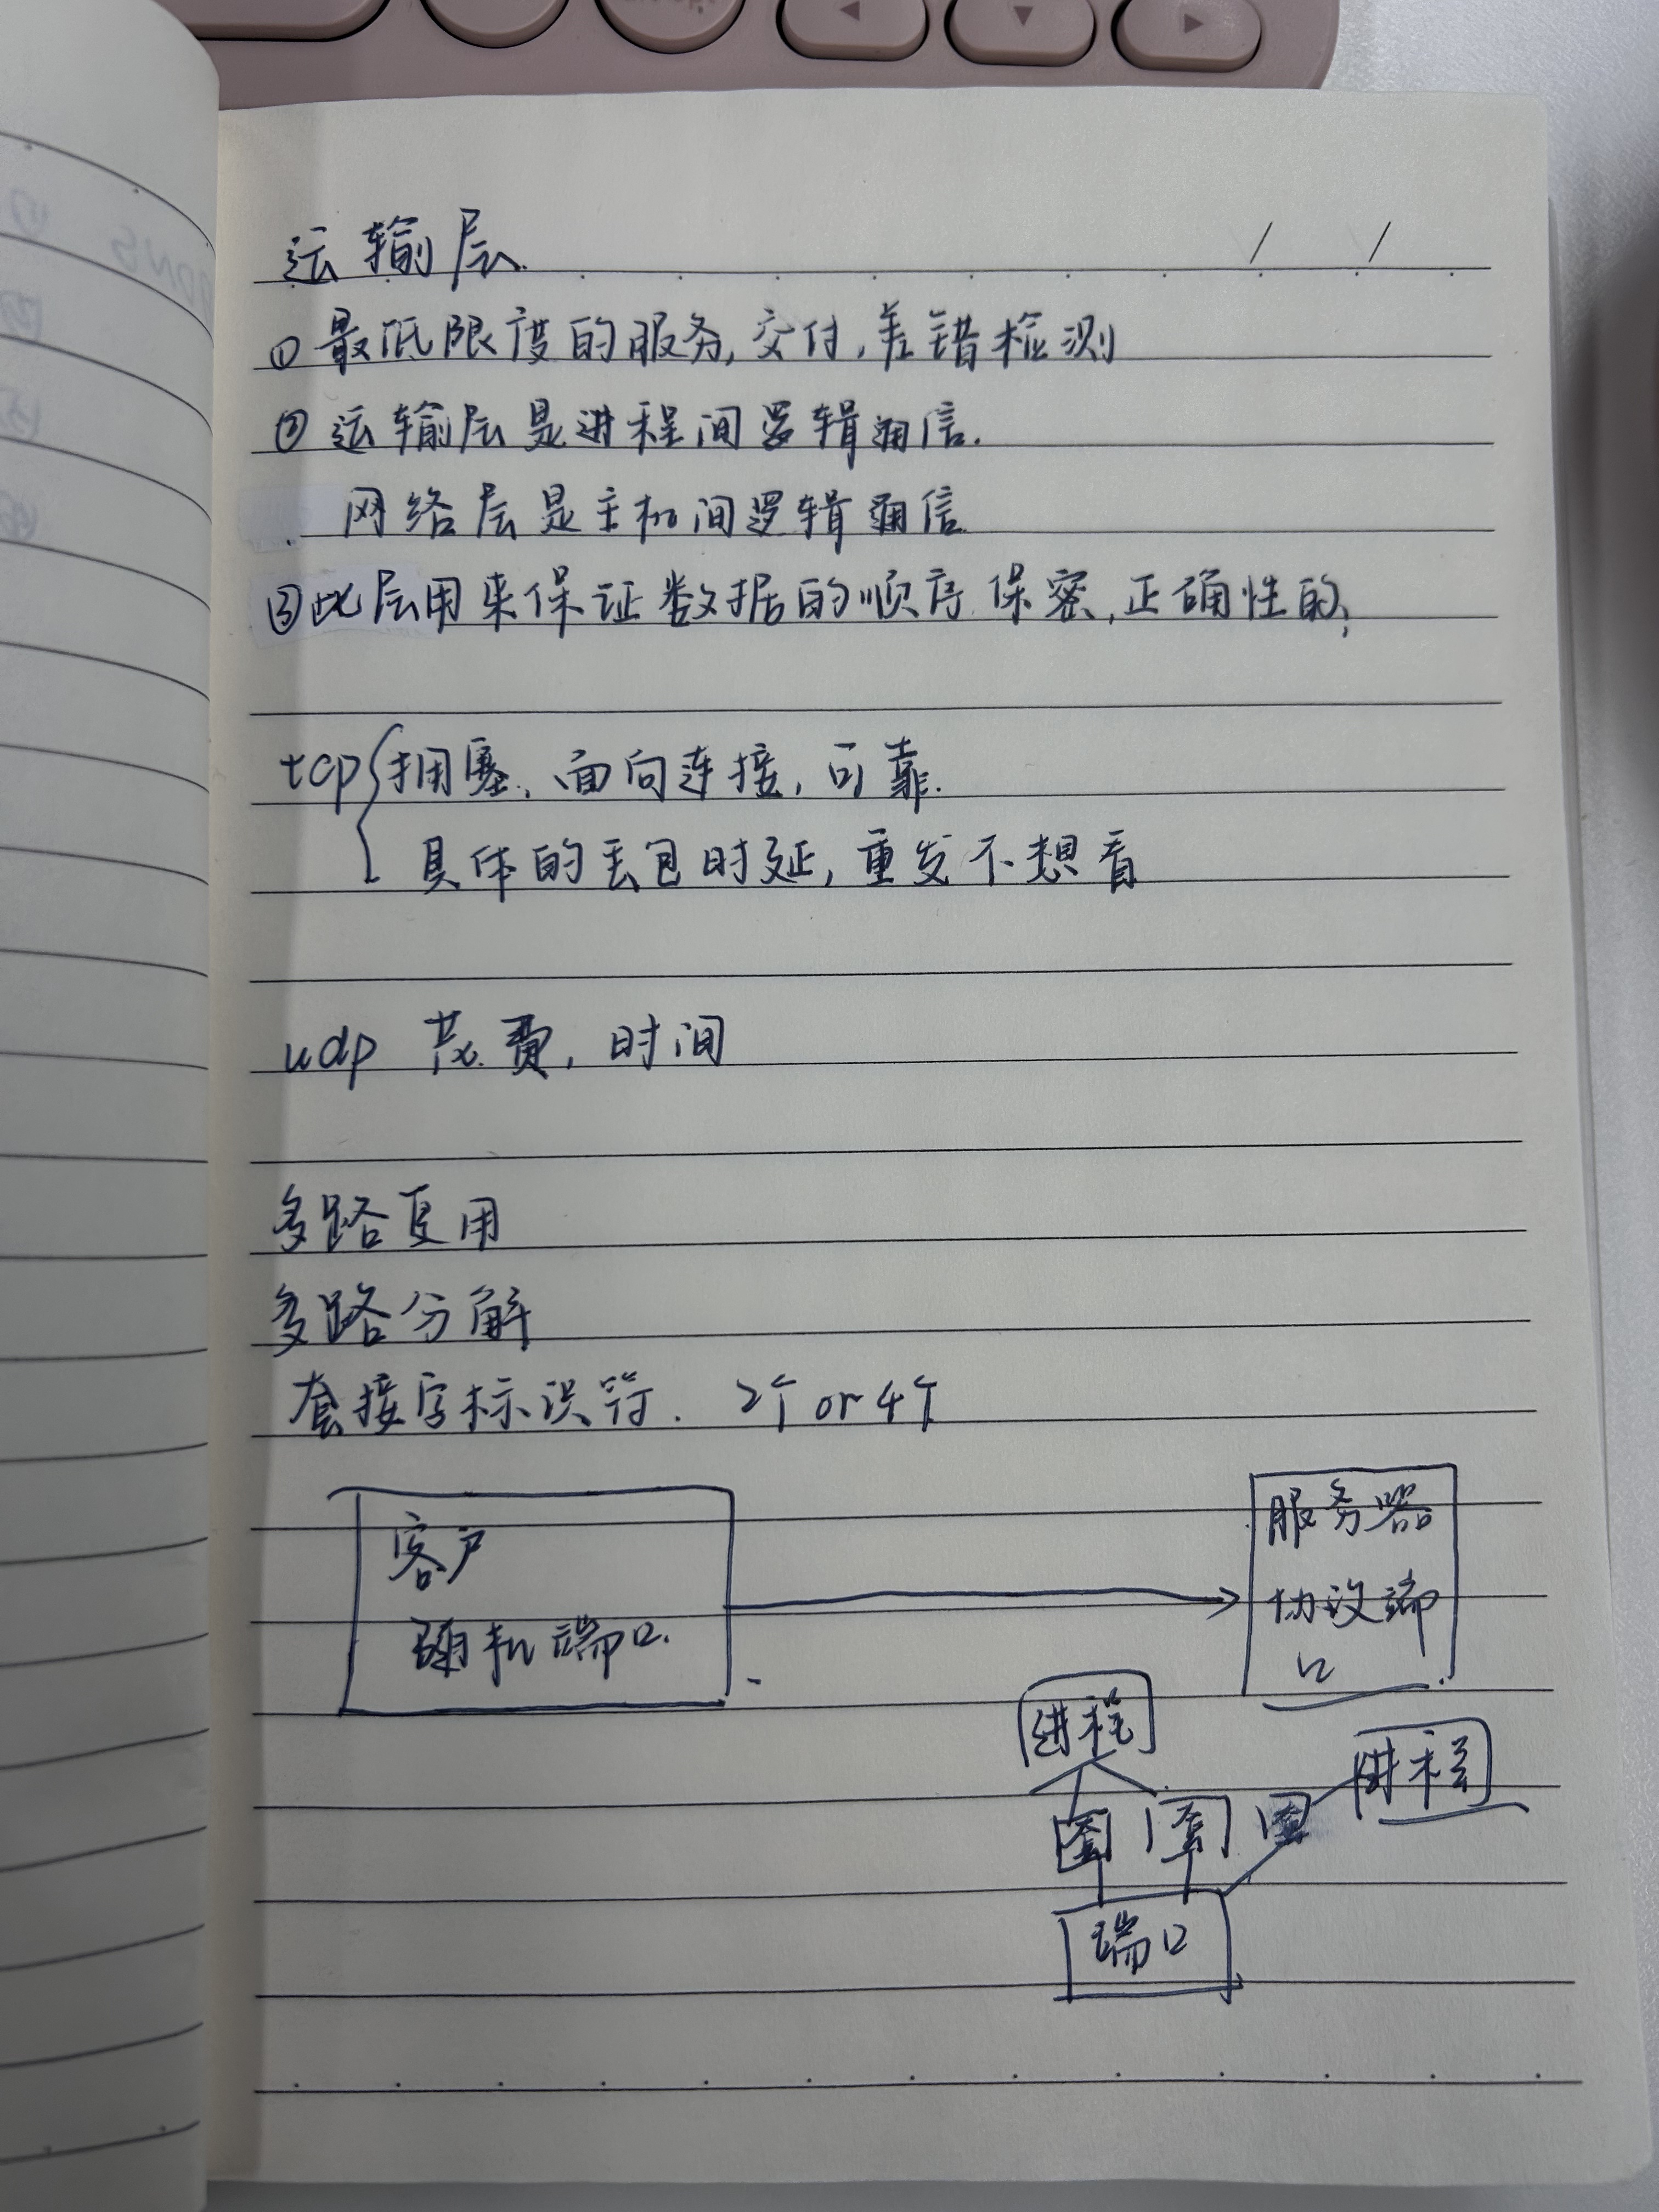 运输层
①最低限度的服务,交付,差错检测
②运输层是进程间逻辑通信.
网络层是主机间逻辑通信
③此层用来保证数据的顺序.保密,正确性的,
tcp 拥塞,面向连接,可靠.
具体的丢包时延,重发不想看
udp 花费,时间
多路复用
多路分解
套接字标识符. 2个or4个
客户
随机端口.
服务器
协议端
口
进程
进程
套 套 套
端口